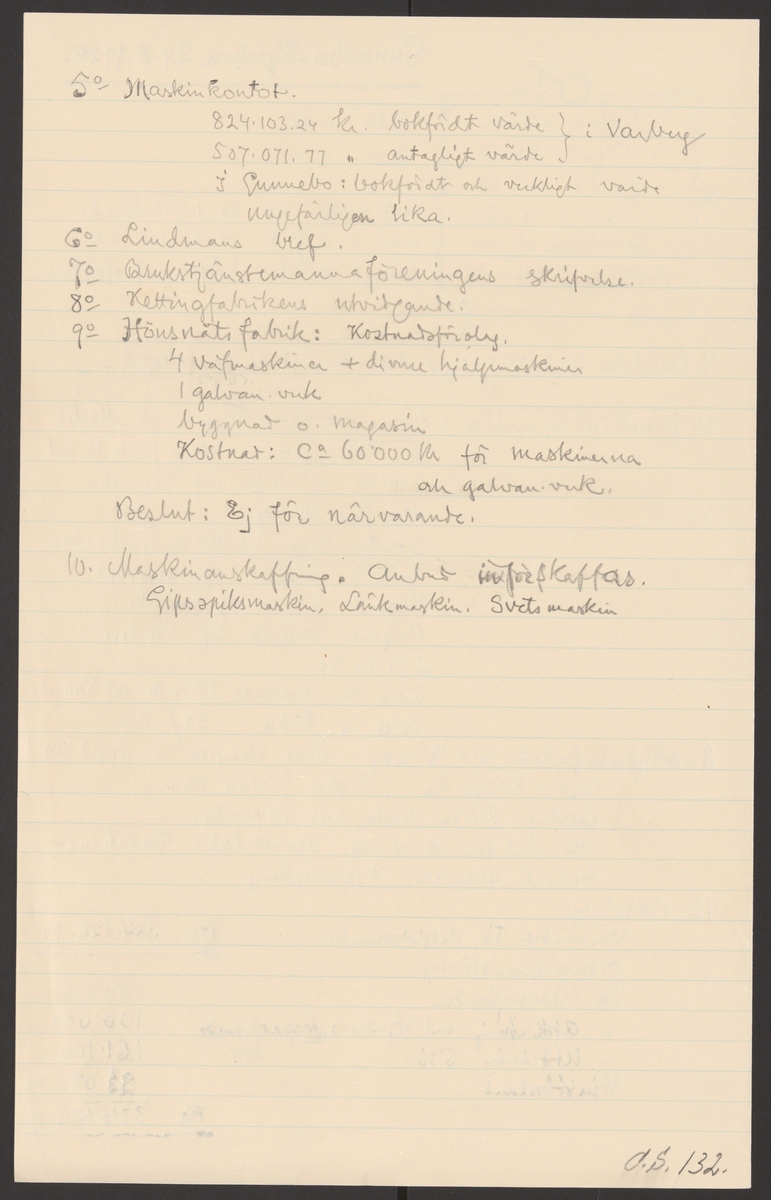 5º Maskinkontot.
824.103.24 Kr. bokfördt värde } i Varberg
507.071.77 " antagligt värde
i Gunnebo: bokfördt och verkligt värde
ungefärligen lika.
6º Lindmans bref.
7º Brukstjänstemannaföreningens skrifvelse.
8º Kettingfabrikens utvidgande.
9º Hönsnätsfabrik: Kostnadsförslag.
4 väfmaskiner + diverse hjälpmaskiner
1 galvan. verk
byggnad o. magasin
Kostnad: Cª 60'000 Kr för maskinerna
och galvan. verk.
Beslut: Ej för närvarande.
10. Maskinanskaffning. Anbud införskaffas.
Gipsspiksmaskin. Länkmaskin. Svetsmaskin
O.S. 132.